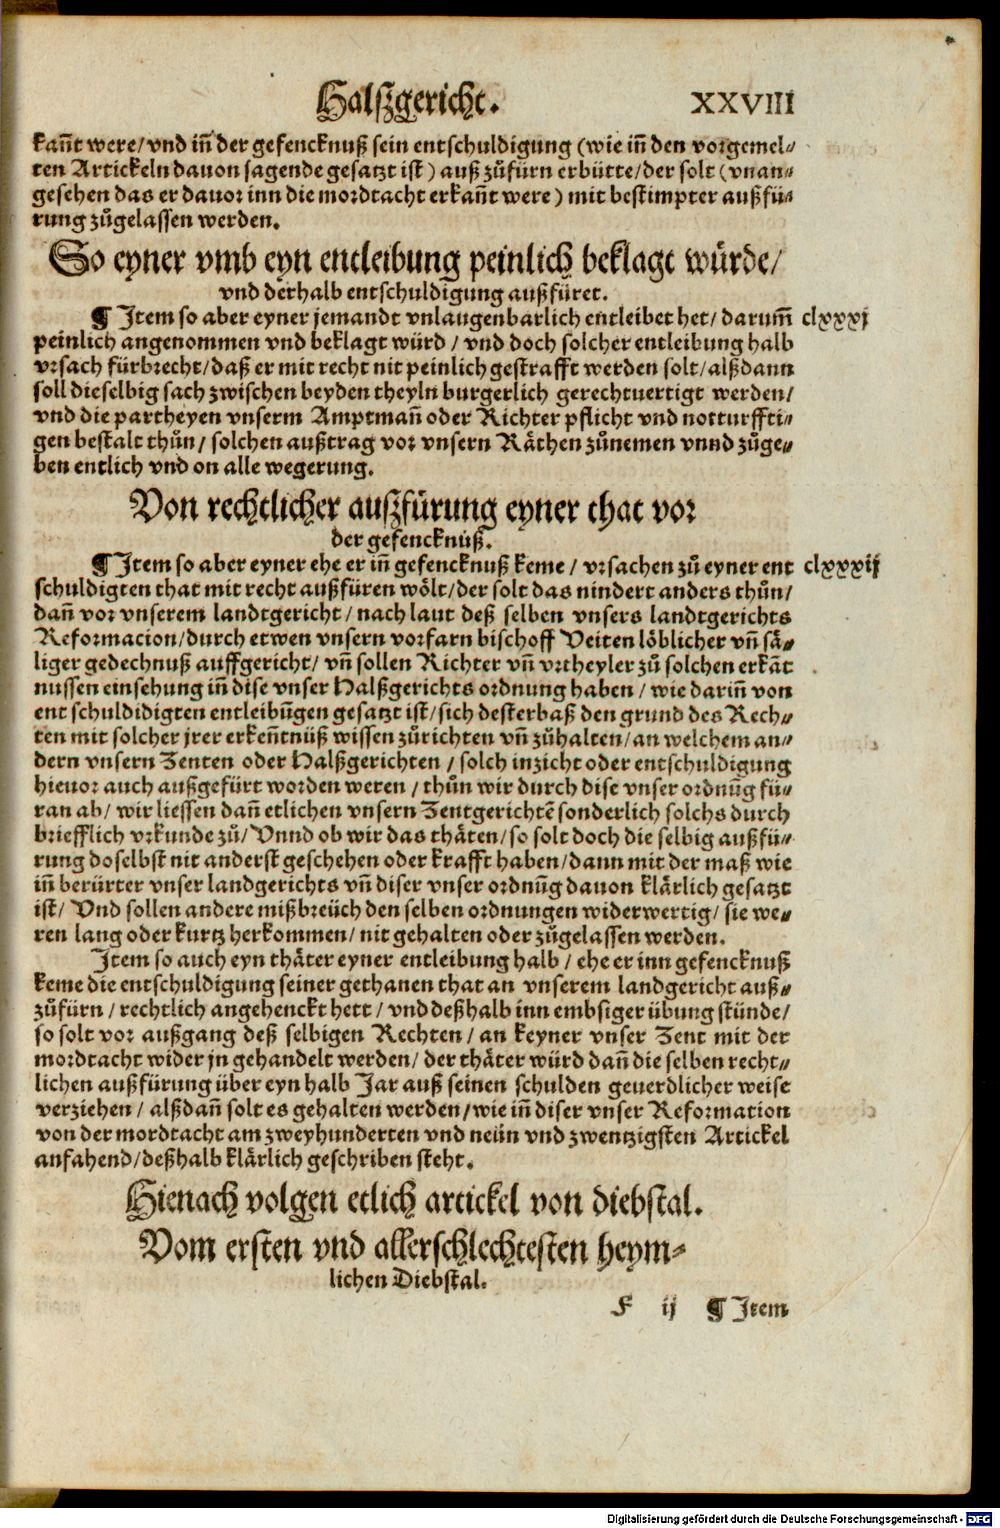 Halßgericht. XXVIII
kañt were/ vnd iñ der gefencknuß sein entschuldigung (wie iñ den vorgemel⸗
ten Artickeln dauon sagende gesatzt ist) auß zůfürn erbütte/ der solt (vnan⸗
gesehen das er dauor inn die mordtacht erkañt were) mit bestimpter außfü⸗
rung zůgelassen werden.
So eyner vmb eyn entleibung peinlich beklagt würde/
vnd derhalb entschuldigung außfüret.
¶ Item so aber eyner jemandt vnlaugenbarlich entleibet het/ darum̄ clxxxj
peinlich angenommen vnd beklagt würd / vnd doch solcher entleibung halb
vrsach fürbrecht/ daß er mit recht nit peinlich gestrafft werden solt/ alßdann
soll dieselbig sach zwischen beyden theyln burgerlich gerechtuertigt werden/
vnd die partheyen vnserm Amptmañ oder Richter pflicht vnd notturffti⸗
gen bestalt thůn/ solchen außtrag vor vnsern Räthen zůnemen vnnd zůge⸗
ben entlich vnd on alle wegerung.
Von rechtlicher außfürung eyner that vor
der gefencknüß.
¶ Item so aber eyner ehe er iñ gefencknuß keme / vrsachen zů eyner ent clxxxij
schuldigten that mit recht außfüren wölt/ der solt das nindert anders thůn/
dañ vor vnserem landtgericht/ nach laut deß selben vnsers landtgerichts
Reformacion/ durch etwen vnsern vorfarn bischoff Veiten löblicher vñ sä⸗
liger gedechnuß auffgericht/ vñ sollen Richter vñ vrtheyler zů solchen erkāt
nussen einsehung iñ dise vnser Halßgerichts ordnung haben / wie dariñ von
ent schuldidigten entleibūgen gesatzt ist/ sich desterbaß den grund des Rech⸗
ten mit solcher jrer erkeñtnüß wissen zůrichten vñ zůhalten/ an welchem an⸗
dern vnsern Zenten oder Halßgerichten / solch inzicht oder entschuldigung
hieuor auch außgefürt worden weren / thůn wir durch dise vnser ordnūg fü⸗
ran ab/ wir liessen dañ etlichen vnsern Zentgerichtē sonderlich solchs durch
briefflich vrkunde zů/ Vnnd ob wir das thäten/ so solt doch die selbig außfü⸗
rung doselbst nit anderst geschehen oder krafft haben/ dann mit der maß wie
iñ berürter vnser landgerichts vñ diser vnser ordnūg dauon klärlich gesatzt
ist/ Vnd sollen andere mißbreüch den selben ordnungen widerwertig/ sie we⸗
ren lang oder kurtz herkommen/ nit gehalten oder zůgelassen werden.
Item so auch eyn thäter eyner entleibung halb / ehe er inn gefencknuß
keme die entschuldigung seiner gethanen that an vnserem landgericht auß⸗
zůfürn / rechtlich angehenckt hett / vnd deßhalb inn embsiger übung stünde/
so solt vor außgang deß selbigen Rechten/ an keyner vnser Zent mit der
mordtacht wider jn gehandelt werden/ der thäter würd dañ die selben recht⸗
lichen außfürung über eyn halb Jar auß seinen schulden geuerdlicher weise
verziehen / alßdañ solt es gehalten werden/ wie iñ diser vnser Reformation
von der mordtacht am zweyhunderten vnd neün vnd zwentzigsten Artickel
anfahend/ deßhalb klärlich geschriben steht.
Hienach volgen etlich artickel von diebstal.
Vom ersten vnd allerschlechtesten heym⸗
lichen Diebstal.
F ij ¶ Item
Digitalisierung gefördert durch die Deutsche Forschungsgemeinschaft - DFG